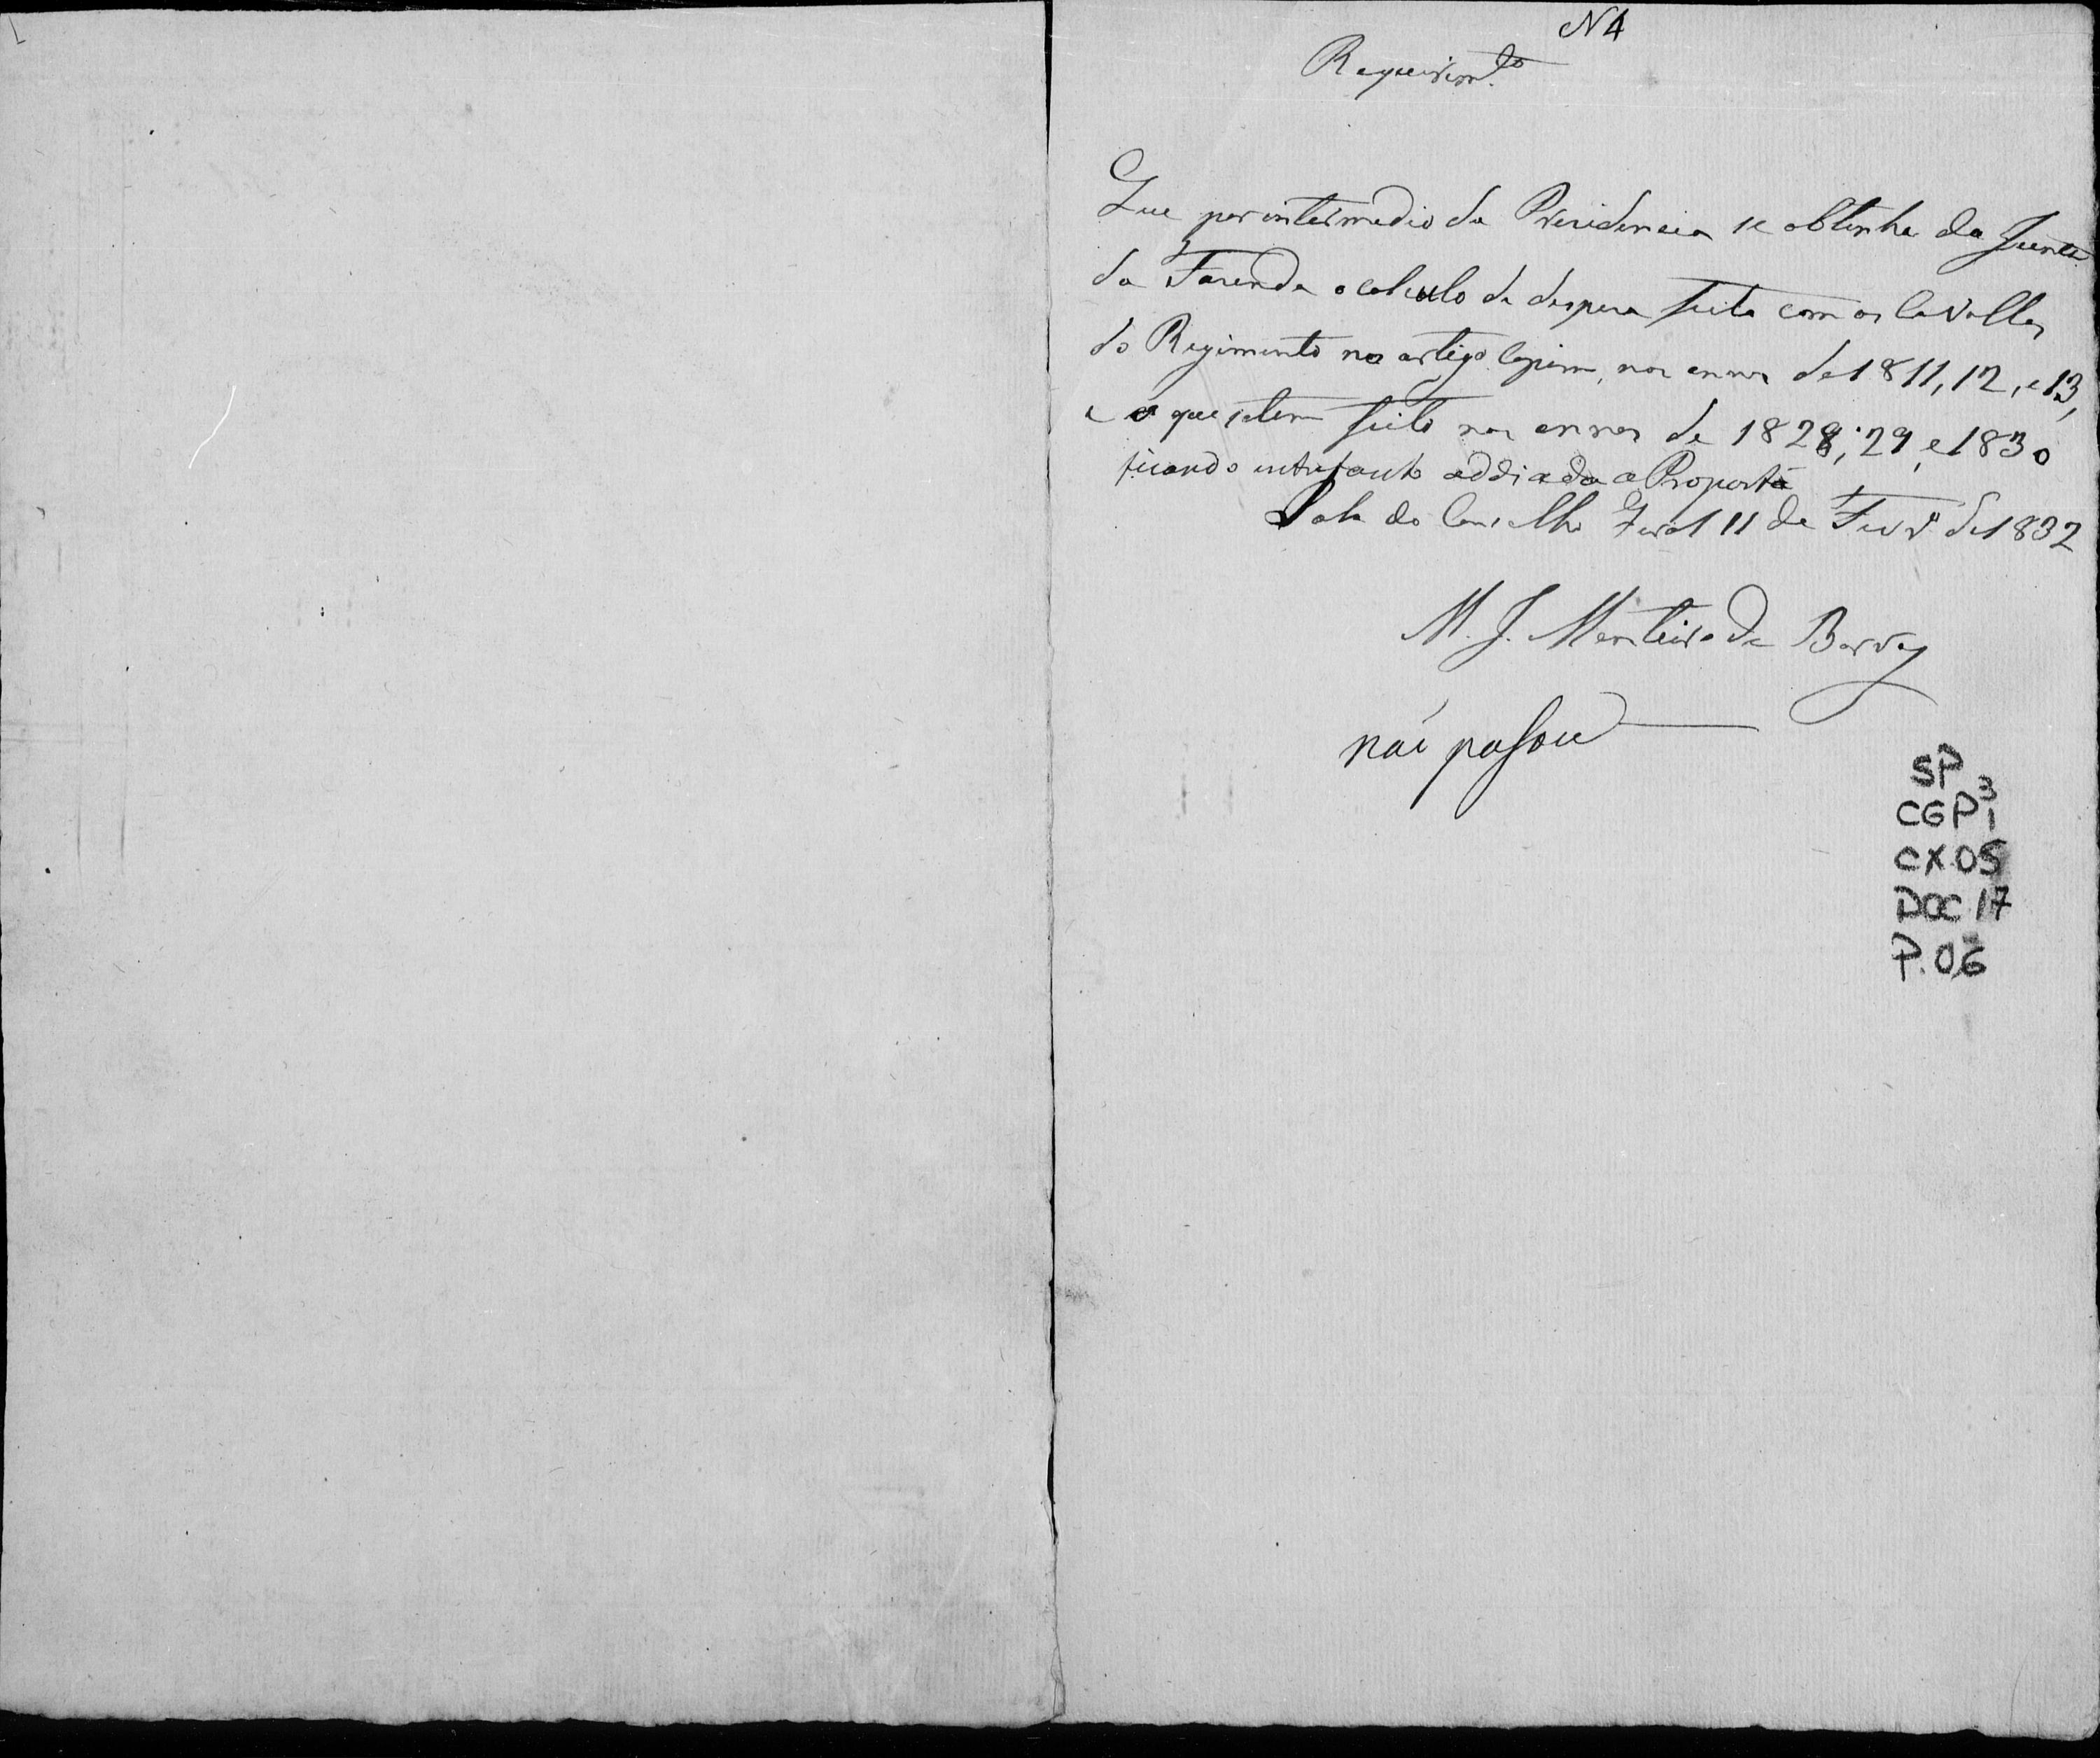 N 4
Requerim.to
Que por intermedio da Presidencia se obtenha da Junta
da Fazenda o calculo da despeza feita com os Cavallos
do Regimento no artigo Capim, nos annos de 1811, 12, e 13,
e o que se tem feito nos annos de 1828, 29, e 1830
ficando entretanto addiada a Proposta
Sala do Conselho Geral 11 de Fevr.o de 1832
M. J. Monteiro de Barros
não passou
SP
CGP 3
1
CX.05
DOC.17
P.06